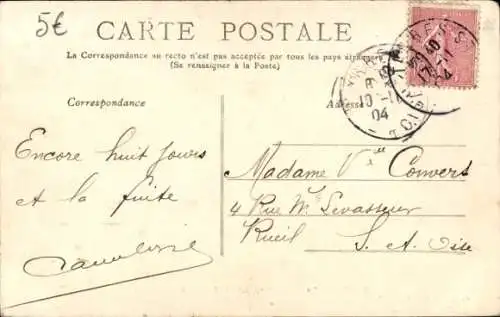 5€
CARTE POSTALE
La Correspondance au recto n'est pas acceptée par tous les pays étrangers
(Se renseigner à la Poste)
Correspondance
Adresse
04
Encore huit jours
et la fuite
Madame Vve Convers
4 Rue Mce Levasseur
Rueil S. et Oise